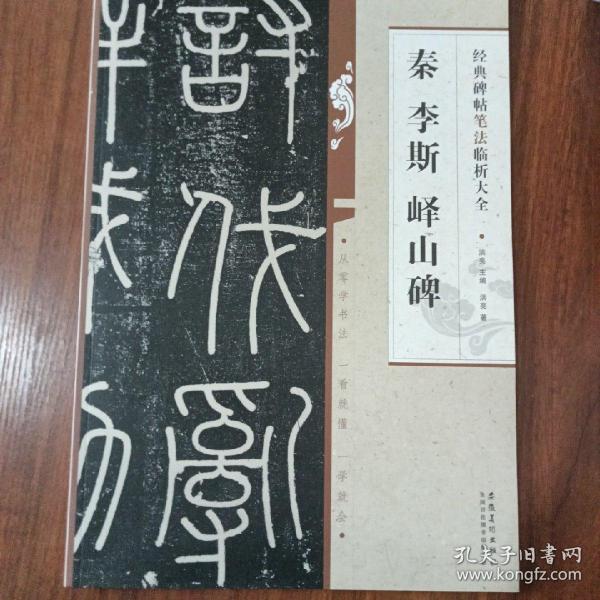 经典碑帖笔法临析大全
洪亮 主编 洪亮 著
秦 李斯 峄山碑
从零学书法 一看就懂 一学就会
討伐亂
安徽美术出版社
全国百佳图书出版单位
孔夫子旧书网
www.kongfz.com